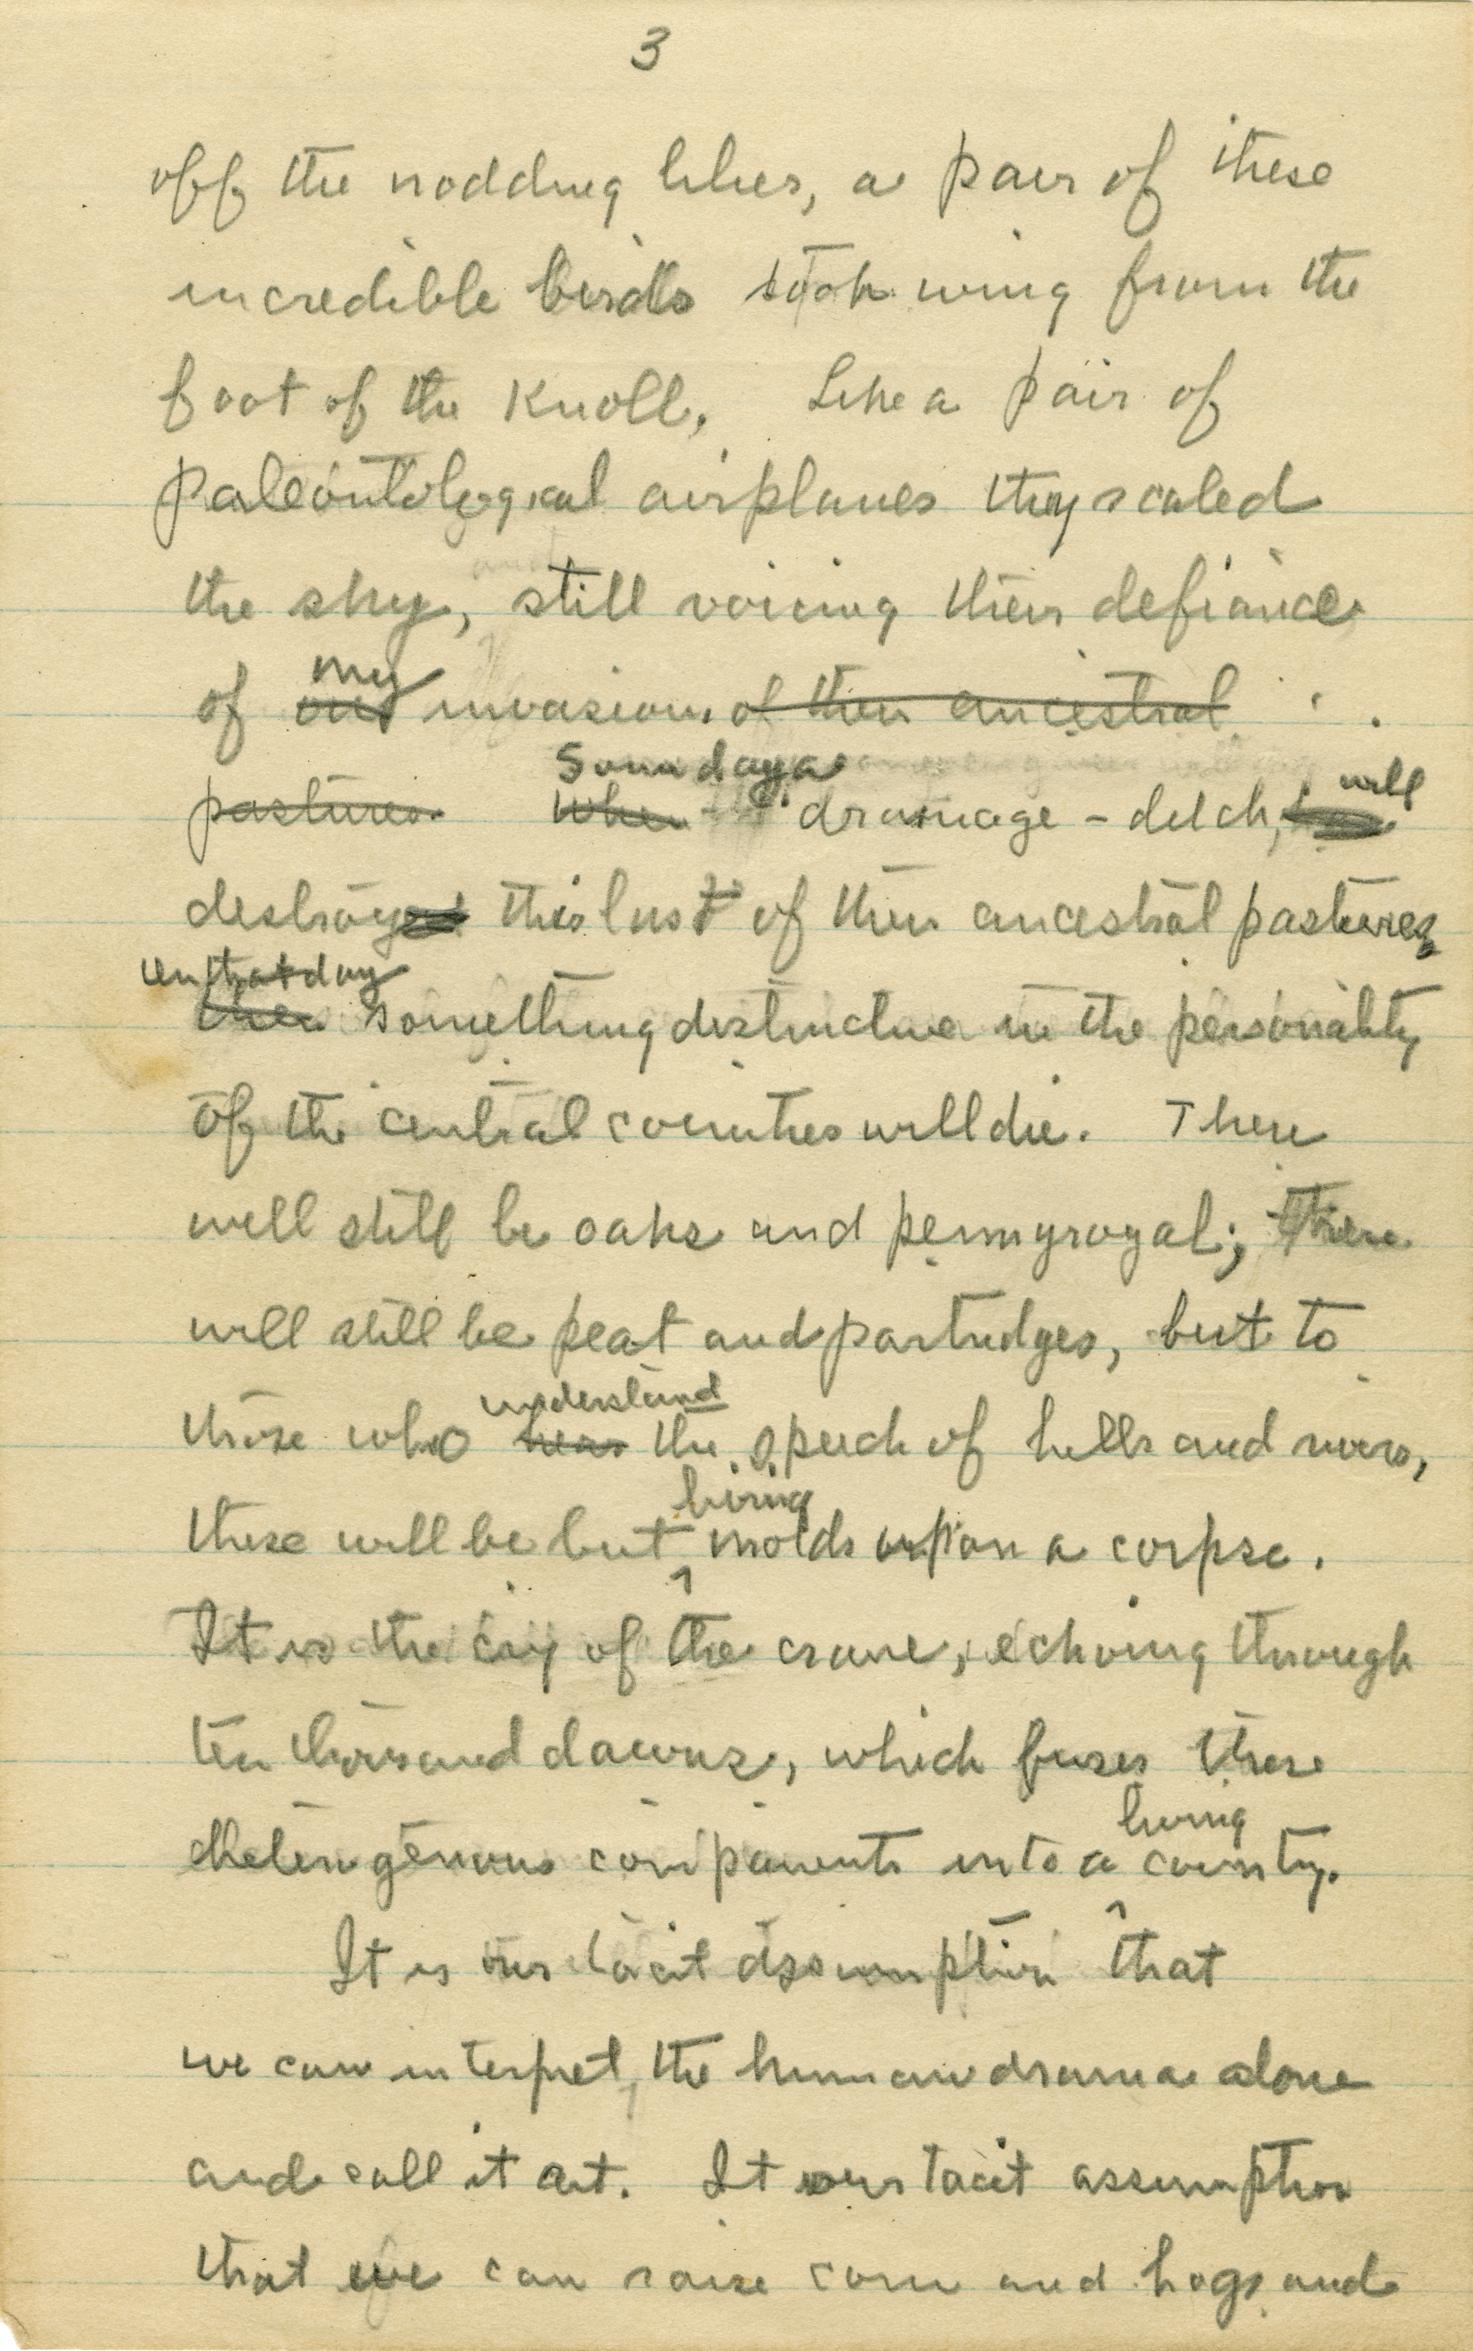 3
off the nodding lilies, a pair of these
incredible birds took wing from the
foot of the Knoll. Like a pair of
paleontological airplanes they scaled
the sky, still voicing their defiance
my
of our invasion of their ancestral
Some day a will
pastures. When drainage-ditch,
destroy this last of their ancestral pastures,
on that day
then something distinctive in the personality
of the central counties will die. There
will still be oaks and pennyroyal; there
will still be peat and partridges, but to
understand
those who hear the speech of hills and rivers,
living
these will be but ^ molds upon a corpse.
It is the cry of the crane, echoing through
ten thousand dawns, which fuses these
living
heterogenous components into a ^ county.
It is our tacit assumption that
we can interpret the human drama alone
and call it art. It our tacit assumption
that we can raise corn and hogs and